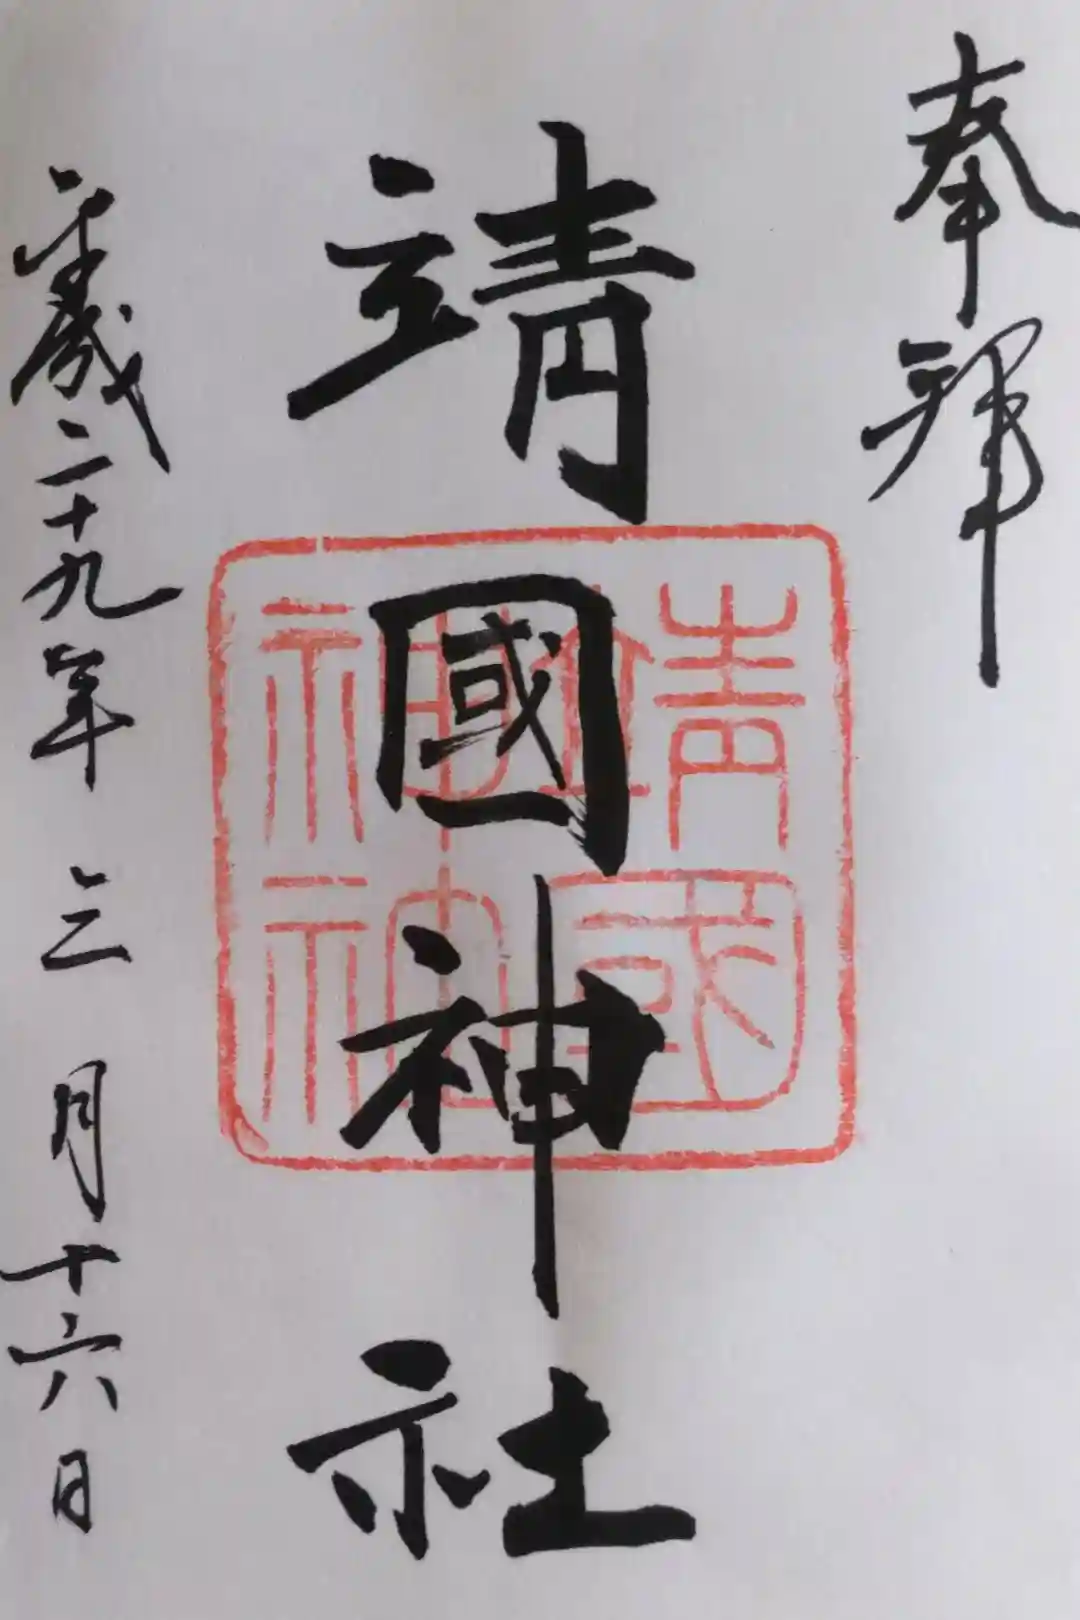 奉拝
靖國神社
靖國
神社
平成二十九年三月十六日